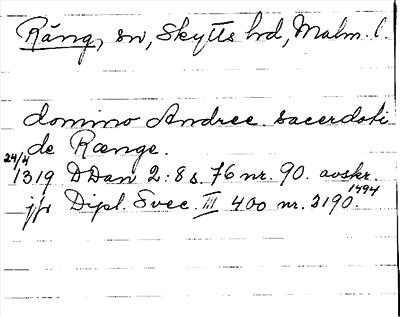 Räng, sn, Skytts hd, Malm. l.
domino Andree sacerdoti
de Rænge.
24/4
1319 DDan 2:8 s. 76 nr. 90. avskr. 1494
jfr Dipl. Svec. III 400 nr. 2190.